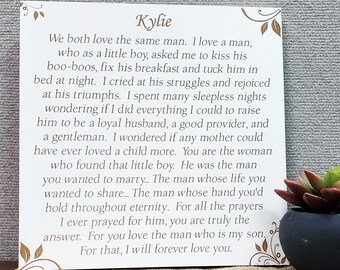 Kylie
We both love the same man. I love a man,
who as a little boy, asked me to kiss his
boo-boos, fix his breakfast and tuck him in
bed at night. I cried at his struggles and rejoiced
at his triumphs. I spent many sleepless nights
wondering if I did everything I could to raise
him to be a loyal husband, a good provider, and
a gentleman. I wondered if any mother could
have ever loved a child more. You are the woman
who found that little boy. He was the man
you wanted to marry... The man whose life you
wanted to share... The man whose hand you'd
hold throughout eternity. For all the prayers
I ever prayed for him, you are truly the
answer. For you love the man who is my son.
For that, I will forever love you.